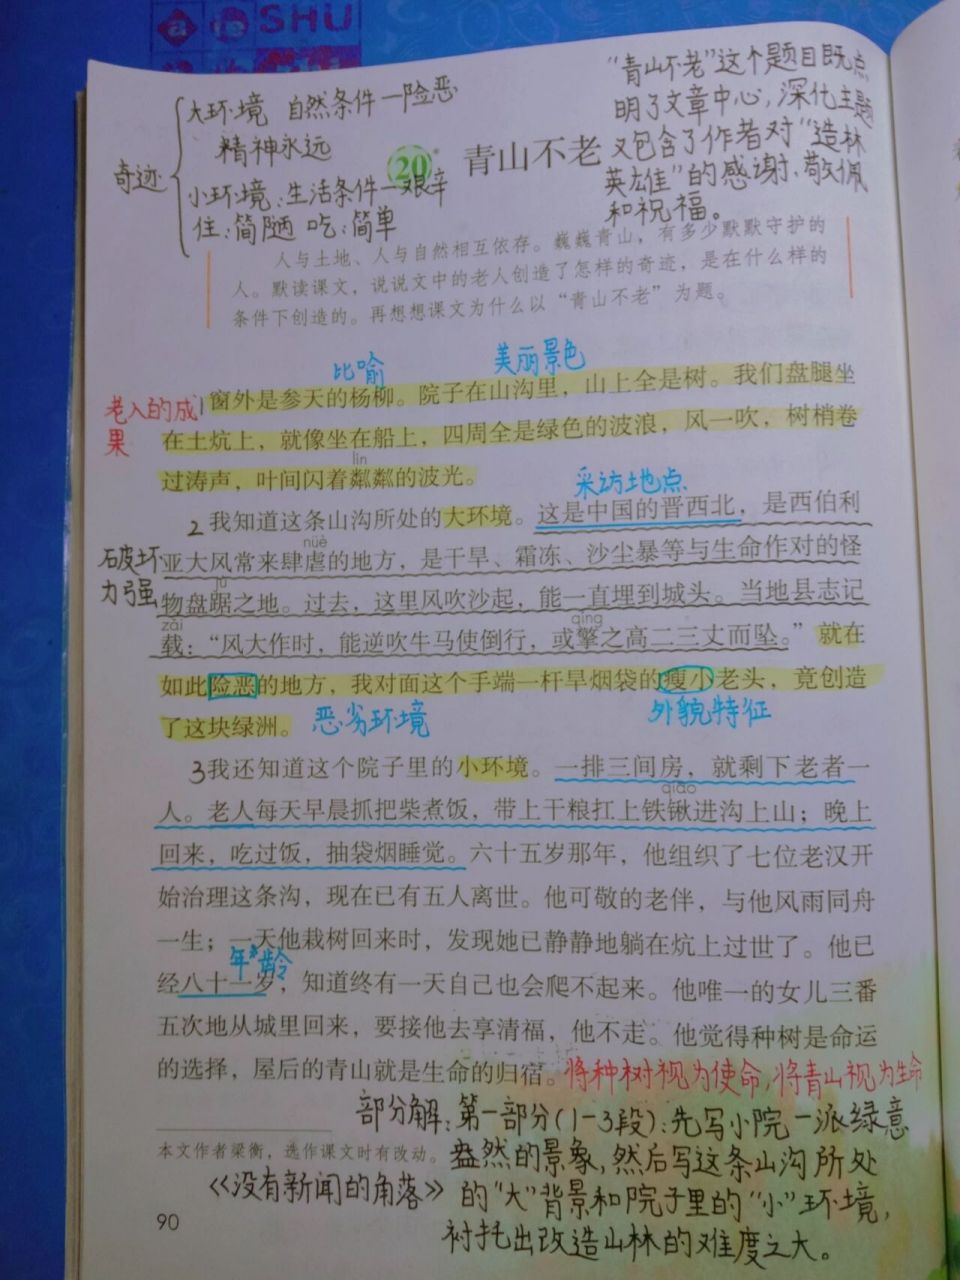 SHU
大环境 自然条件—险恶
精神永远
奇迹
小环境:生活条件—艰辛
住:简陋 吃:简单
"青山不老"这个题目既点
明了文章中心,深化主题
又包含了作者对"造林
英雄"的感谢、敬佩
和祝福。
20* 青山不老
人与土地、人与自然相互依存。巍巍青山,有多少默默守护的
人。默读课文,说说文中的老人创造了怎样的奇迹,是在什么样的
条件下创造的。再想想课文为什么以"青山不老"为题。
比喻 美丽景色
老人的成
果
1窗外是参天的杨柳。院子在山沟里,山上全是树。我们盘腿坐
在土炕上,就像坐在船上,四周全是绿色的波浪,风一吹,树梢卷
lín
过涛声,叶间闪着粼粼的波光。
采访地点
2我知道这条山沟所处的大环境。这是中国的晋西北,是西伯利
nüè
破坏
力强
亚大风常来肆虐的地方,是干旱、霜冻、沙尘暴等与生命作对的怪
jù
物盘踞之地。过去,这里风吹沙起,能一直埋到城头。当地县志记
zǎi qíng
载:"风大作时,能逆吹牛马使倒行,或擎之高二三丈而坠。"就在
如此险恶的地方,我对面这个手端一杆旱烟袋的瘦小老头,竟创造
了这块绿洲。 恶劣环境 外貌特征
3我还知道这个院子里的小环境。一排三间房,就剩下老者一
qiāo
人。老人每天早晨抓把柴煮饭,带上干粮扛上铁锹进沟上山;晚上
回来,吃过饭,抽袋烟睡觉。六十五岁那年,他组织了七位老汉开
始治理这条沟,现在已有五人离世。他可敬的老伴,与他风雨同舟
一生;一天他栽树回来时,发现她已静静地躺在炕上过世了。他已
年龄
经八十一岁,知道终有一天自己也会爬不起来。他唯一的女儿三番
五次地从城里回来,要接他去享清福,他不走。他觉得种树是命运
的选择,屋后的青山就是生命的归宿。将种树视为使命,将青山视为生命
部分解:第一部分(1-3段):先写小院一派绿意
盎然的景象,然后写这条山沟所处
的"大"背景和院子里的"小"环境,
衬托出改造山林的难度之大。
本文作者梁衡,选作课文时有改动。
《没有新闻的角落》
90